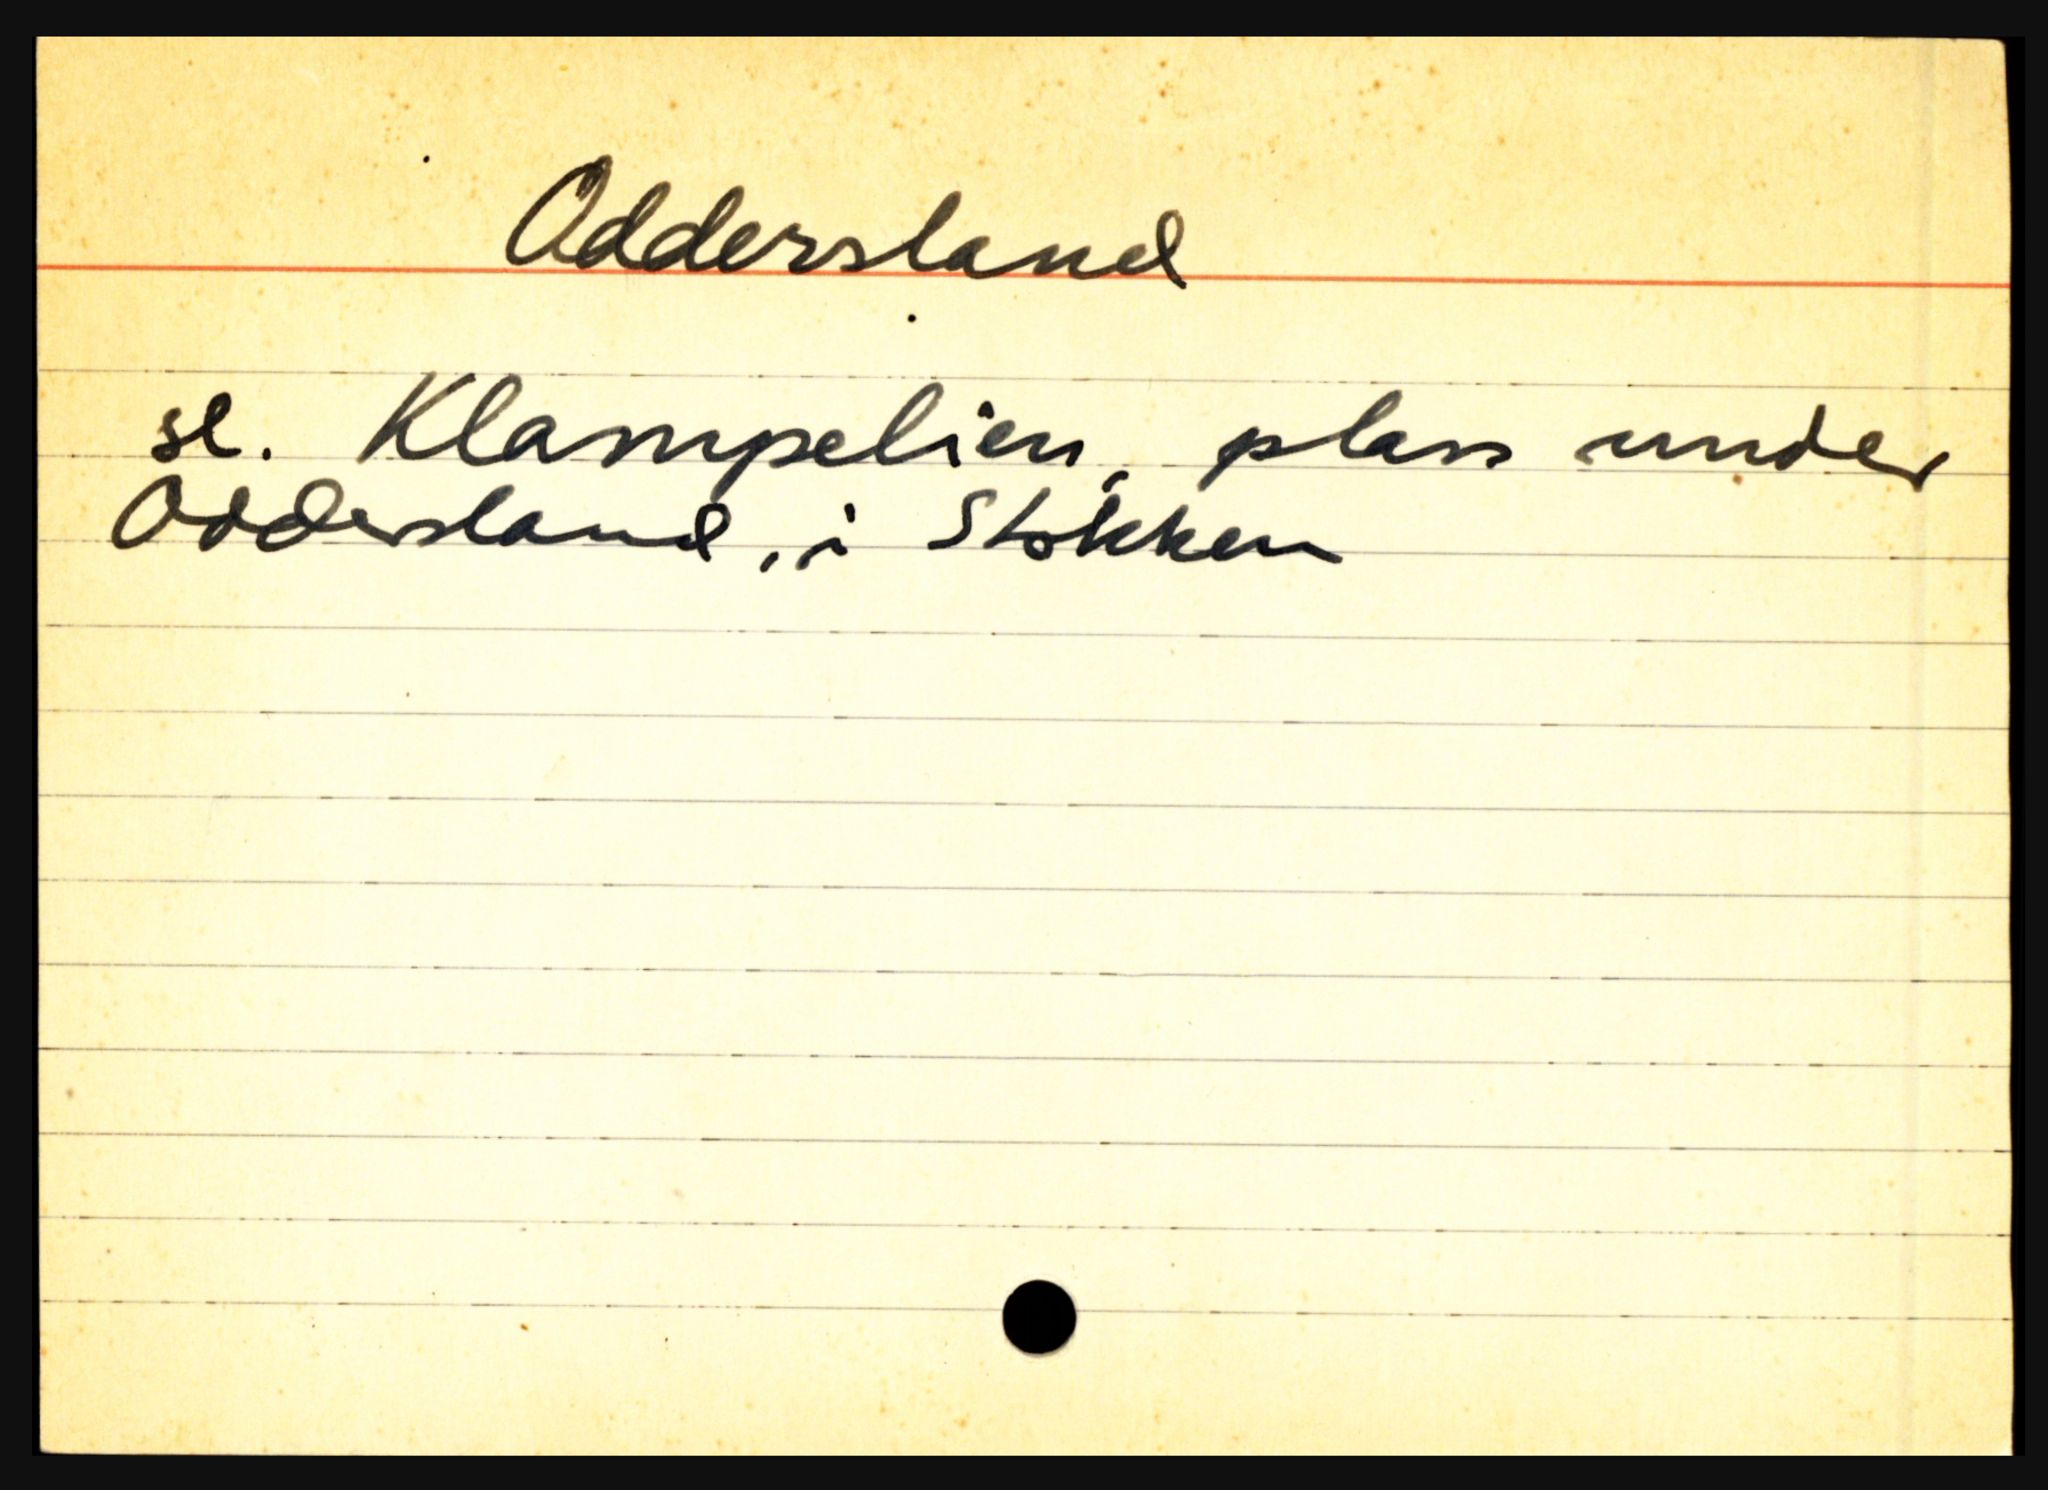 Oddersland
se. Klampelien, plass under
Oddersland, i Stokken